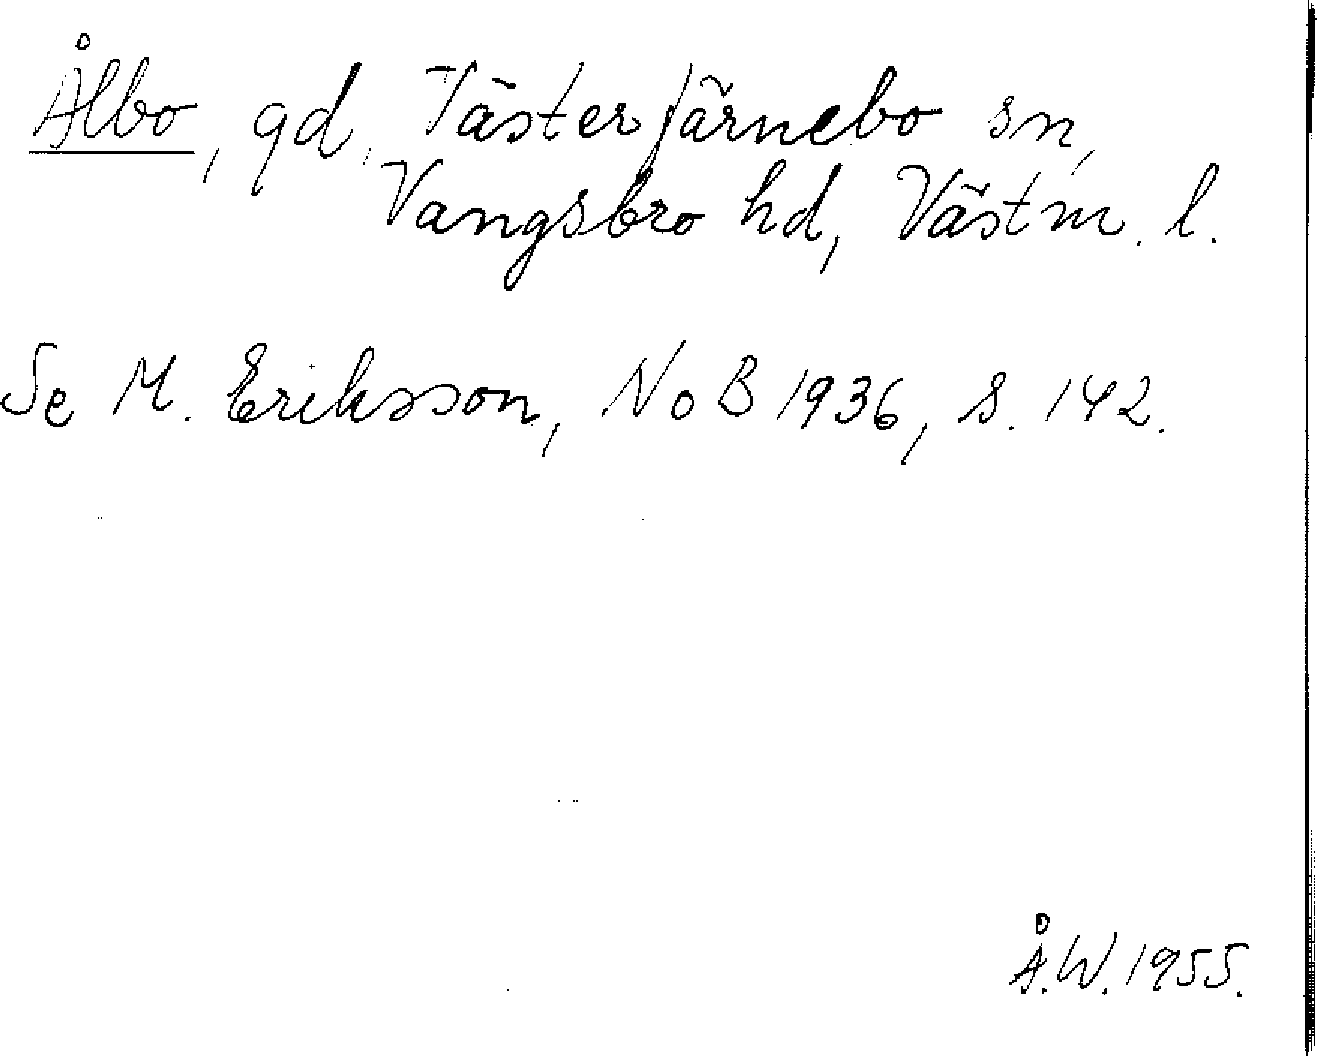 Ålbo, gd, Västerfärnebo sn,
Vangsbro hd, Västm. l.
Se M. Eriksson, NoB 1936, s. 142.
Å.W. 1955.